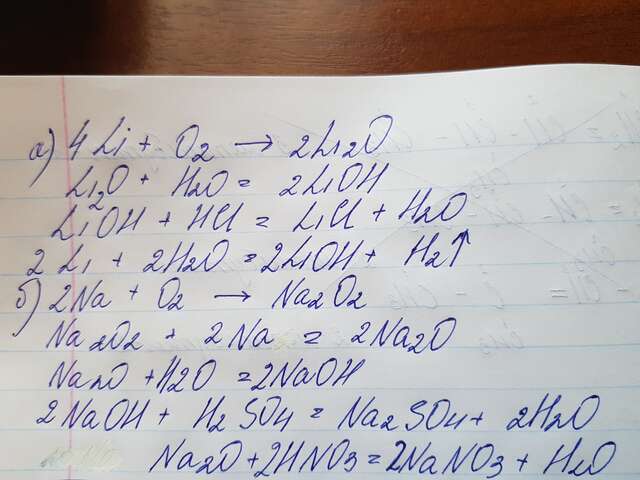 а) 4Li + O2 → 2Li2O
Li2O + H2O = 2LiOH
LiOH + HCl = LiCl + H2O
2Li + 2H2O = 2LiOH + H2↑
б) 2Na + O2 → Na2O2
Na2O2 + 2Na = 2Na2O
Na2O + H2O = 2NaOH
2NaOH + H2SO4 = Na2SO4 + 2H2O
Na2O + 2HNO3 = 2NaNO3 + H2O